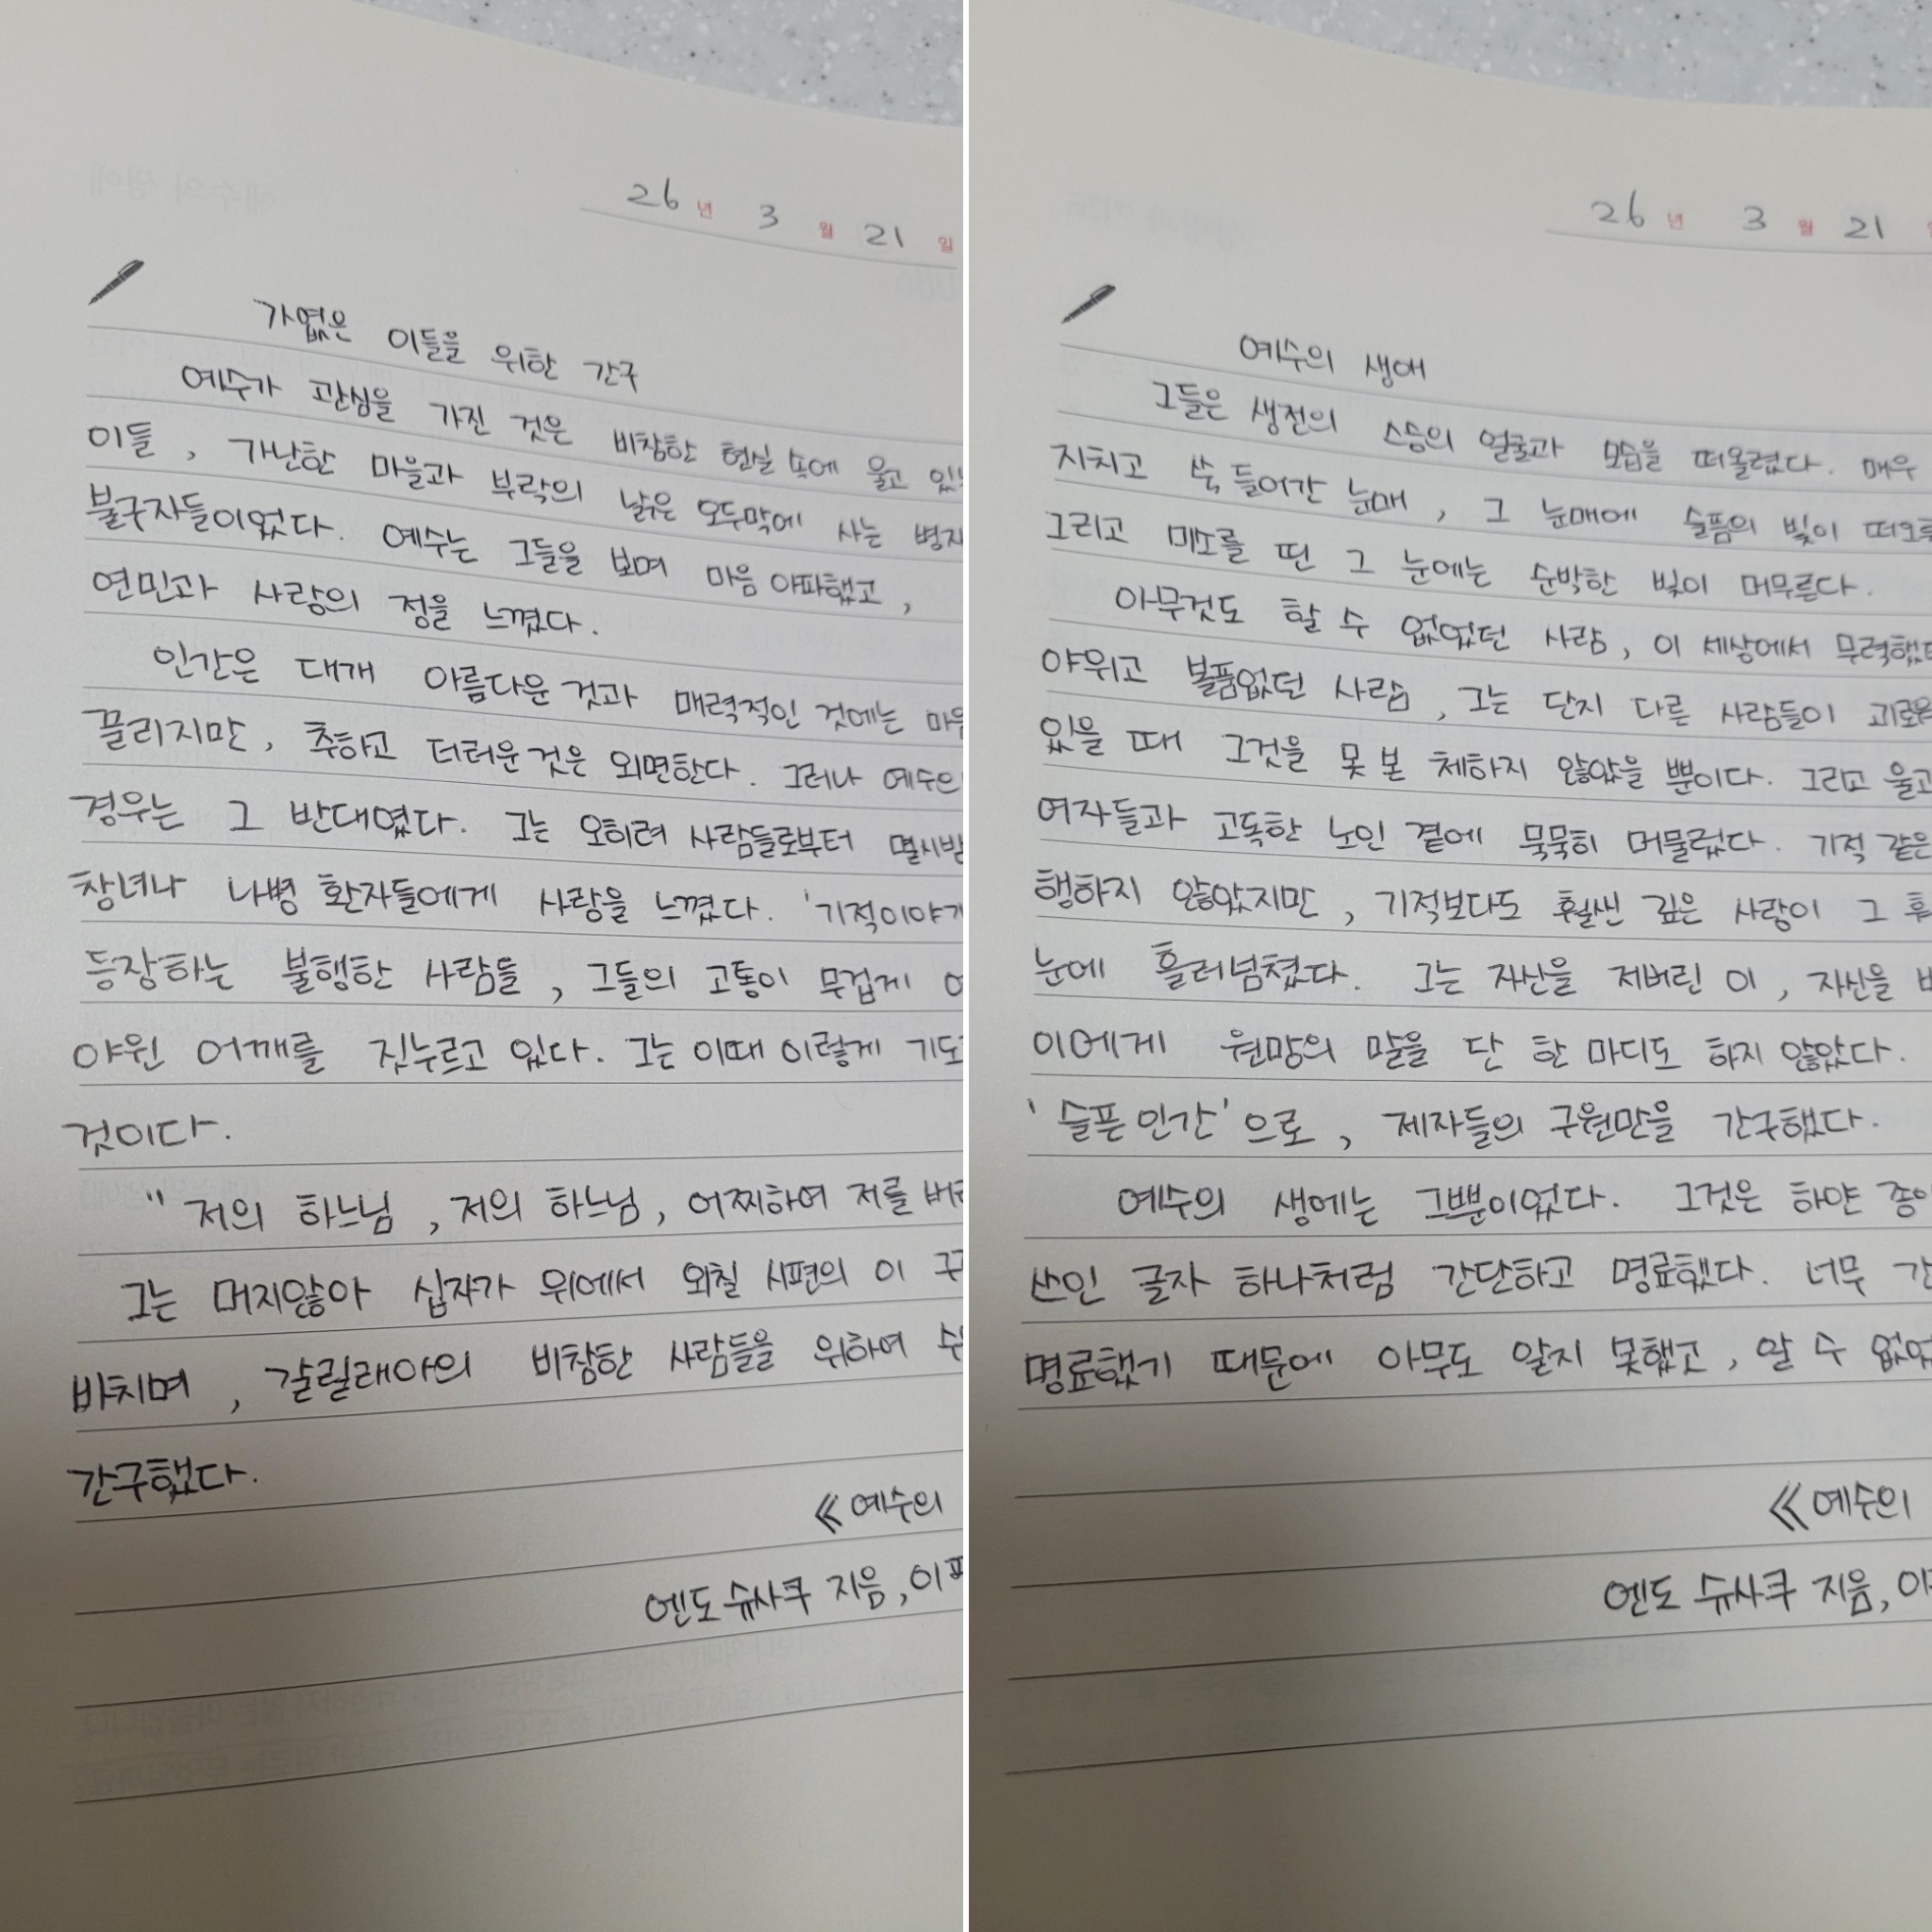 26년 3월 21일
가엾은 이들을 위한 간구
예수가 관심을 가진 것은 비참한 현실 속에 울고
이들, 가난한 마을과 부락의 낡은 오두막에 사는
불구자들이었다. 예수는 그들을 보며 마음 아파했고,
연민과 사랑의 정을 느꼈다.
인간은 대개 아름다운 것과 매력적인 것에는
끌리지만, 추하고 더러운 것은 외면한다. 그러나
경우는 그 반대였다. 그는 오히려 사람들로부터
창녀나 나병 환자들에게 사랑을 느꼈다.
등장하는 불행한 사람들, 그들의 고통이 무겁게
야윈 어깨를 짓누르고 있다. 그는 이때 이렇게
것이다.
" 저의 하느님, 저의 하느님, 어찌하여 저를
그는 머지않아 십자가 위에서 외칠 시편의 이
바치며, 갈릴래아의 비참한 사람들을 위하여
간구했다.
≪예수의
엔도 슈사쿠 지음,
26년 3월 21
예수의 생애
그들은 생전의 스승의 얼굴과 모습을 떠올렸다. 매우
지치고 쑥 들어간 눈매, 그 눈매에 슬픔의 빛이
그리고 미소를 띤 그 눈에는 순박한 빛이 머무른다.
아무것도 할 수 없었던 사람, 이 세상에서
야위고 볼품없던 사람, 그는 단지 다른 사람들이
있을 때 그것을 못 본 체하지 않았을 뿐이다. 그리고 울고
여자들과 고독한 노인 곁에 묵묵히 머물렀다. 기적 같은
행하지 않았지만, 기적보다도 훨씬 깊은 사랑이 그
눈에 흘러넘쳤다. 그는 자신을 저버린 이, 자신을
이에게 원망의 말을 단 한 마디도 하지 않았다.
'슬픈 인간'으로, 제자들의 구원만을 간구했다.
예수의 생애는 그뿐이었다. 그것은 하얀
쓰인 글자 하나처럼 간단하고 명료했다. 너무
명료했기 때문에 아무도 알지 못했고, 알 수
≪예수의
엔도 슈사쿠 지음,